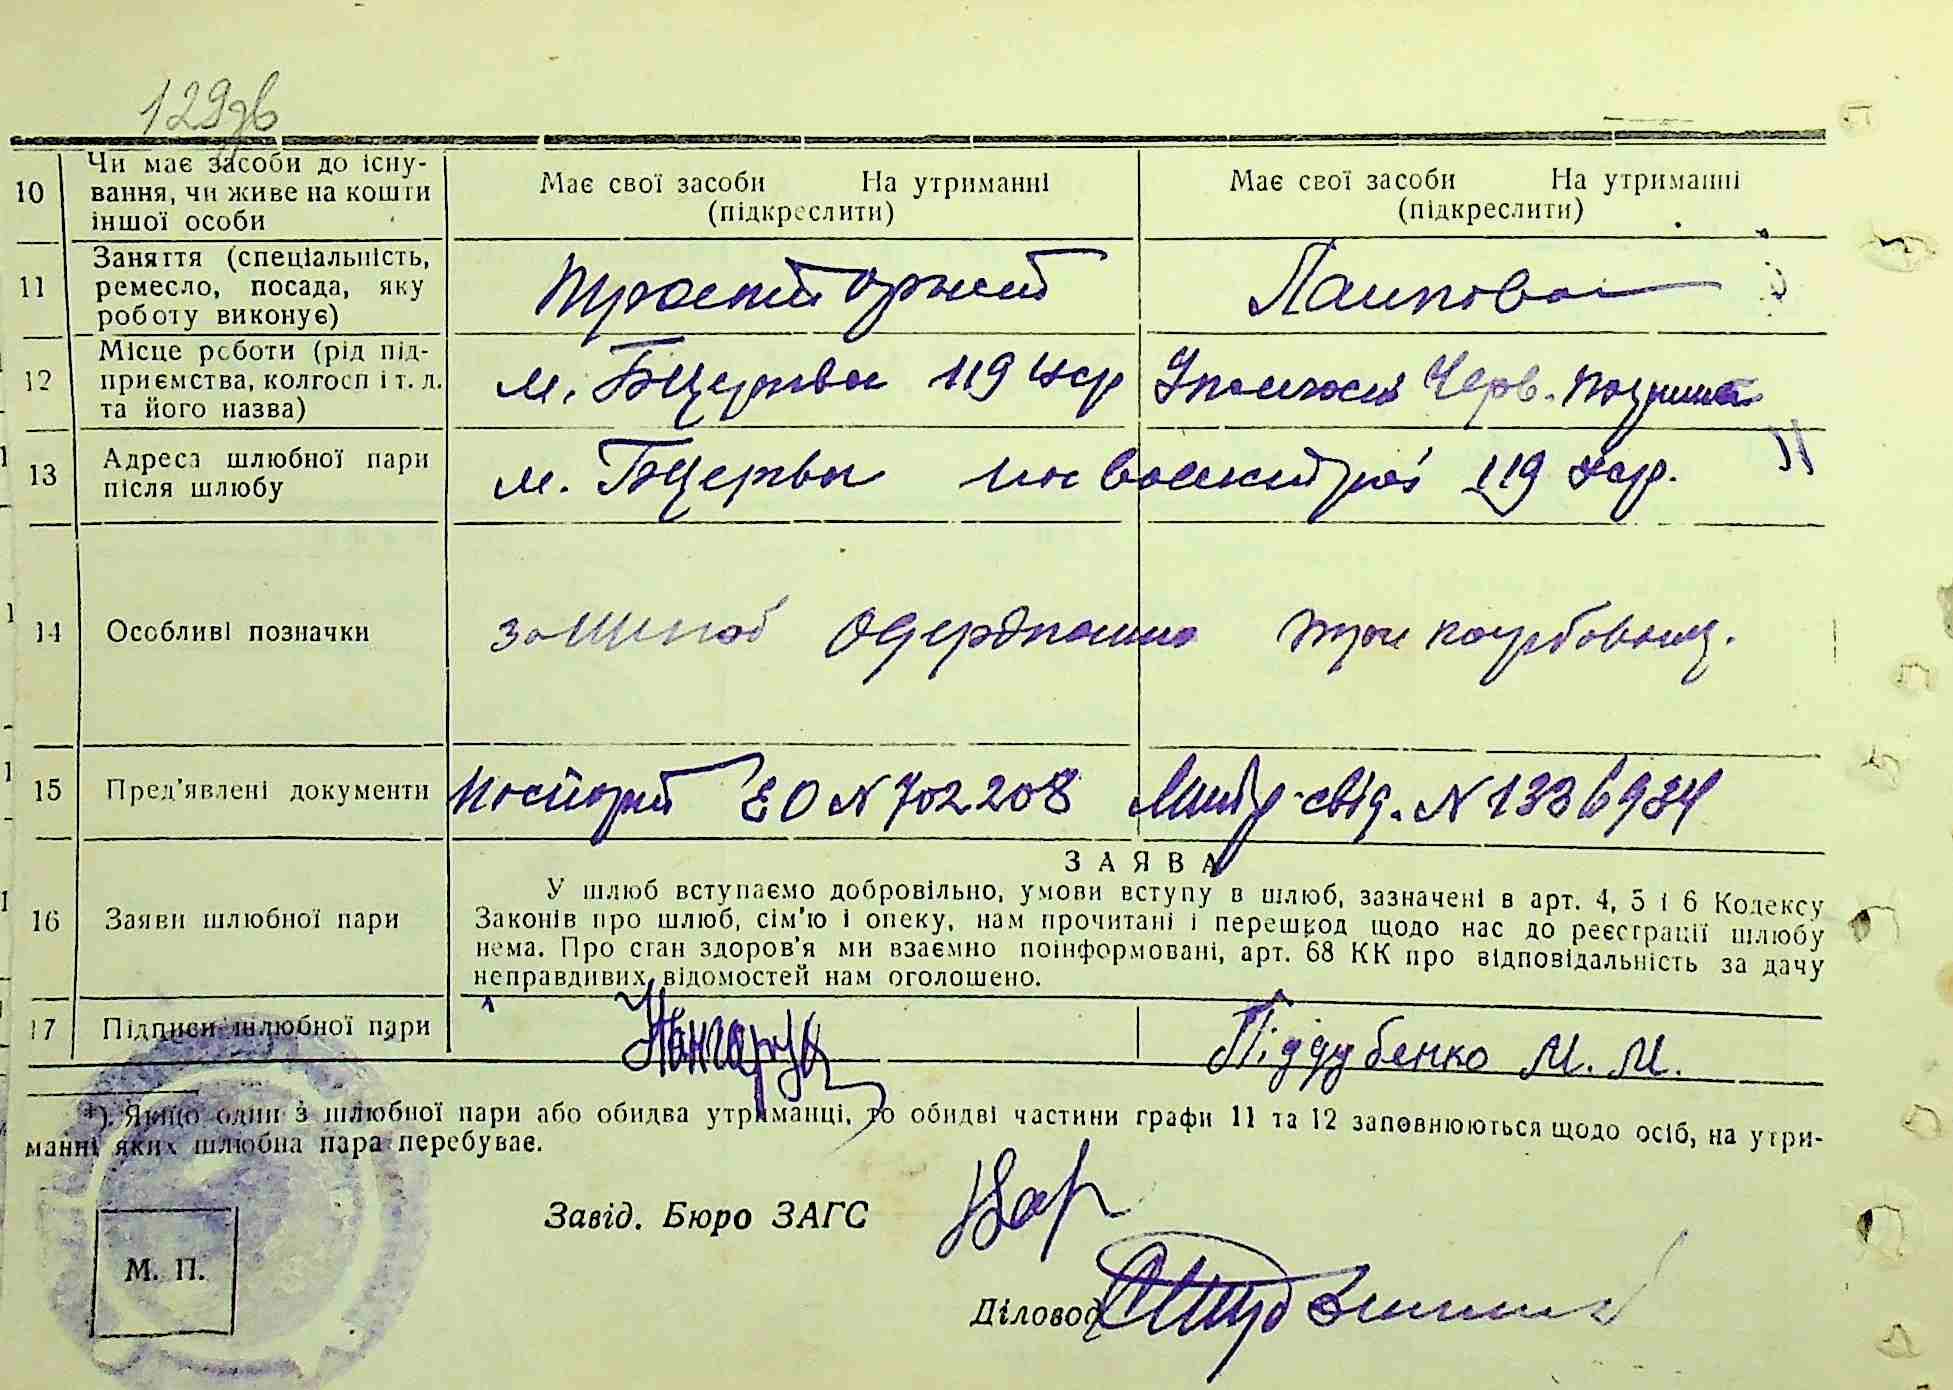 129зв
10 Чи має засоби до існу- Має свої засоби На утриманні Має свої засоби На утриманні
вання, чи живе на кошти (підкреслити) (підкреслити)
іншої особи
11 Заняття (спеціальність,
ремесло, посада, яку Ланкова
роботу виконує)
12 Місце роботи (рід під-
приємства, колгосп і т. д. м. БЦерква 119 Черв.
та його назва)
13 Адреса шлюбної пари м. БЦерква 119
після шлюбу
14 Особливі позначки за шлюб одержано три карбованц.
15 Пред'явлені документи Паспорт ЕО N 702208 свід. N 1336934
З А Я В А
16 Заяви шлюбної пари У шлюб вступаємо добровільно, умови вступу в шлюб, зазначені в арт. 4, 5 і 6 Кодексу
Законів про шлюб, сім'ю і опеку, нам прочитані і перешкод щодо нас до реєстрації шлюбу
нема. Про стан здоров'я ми взаємно поінформовані, арт. 68 КК про відповідальність за дачу
неправдивих відомостей нам оголошено.
17 Підписи шлюбної пари Піддубенко М. М.
*) Якщо один з шлюбної пари або обидва утриманці, то обидві частини графи 11 та 12 заповнюються щодо осіб, на утри-
манні яких шлюбна пара перебуває.
Завід. Бюро ЗАГС
М. П.
Діловод